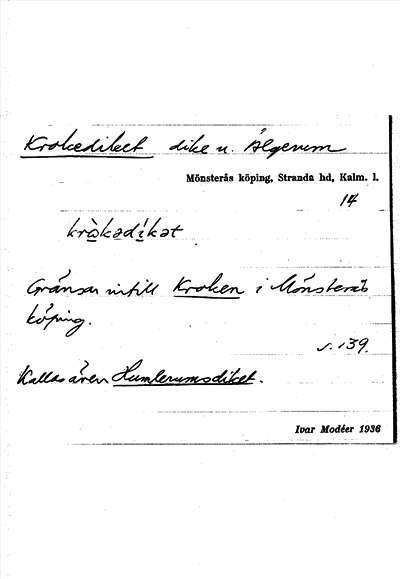 Krokediket dike u. Älgerum
Mönsterås köping, Stranda hd, Kalm. l.
14
krò̱kədi̱kət
Gränsar intill Kroken i Mönsterås
köping.
s. 139.
Kallas även Humlerumsdiket.
Ivar Modéer 1936